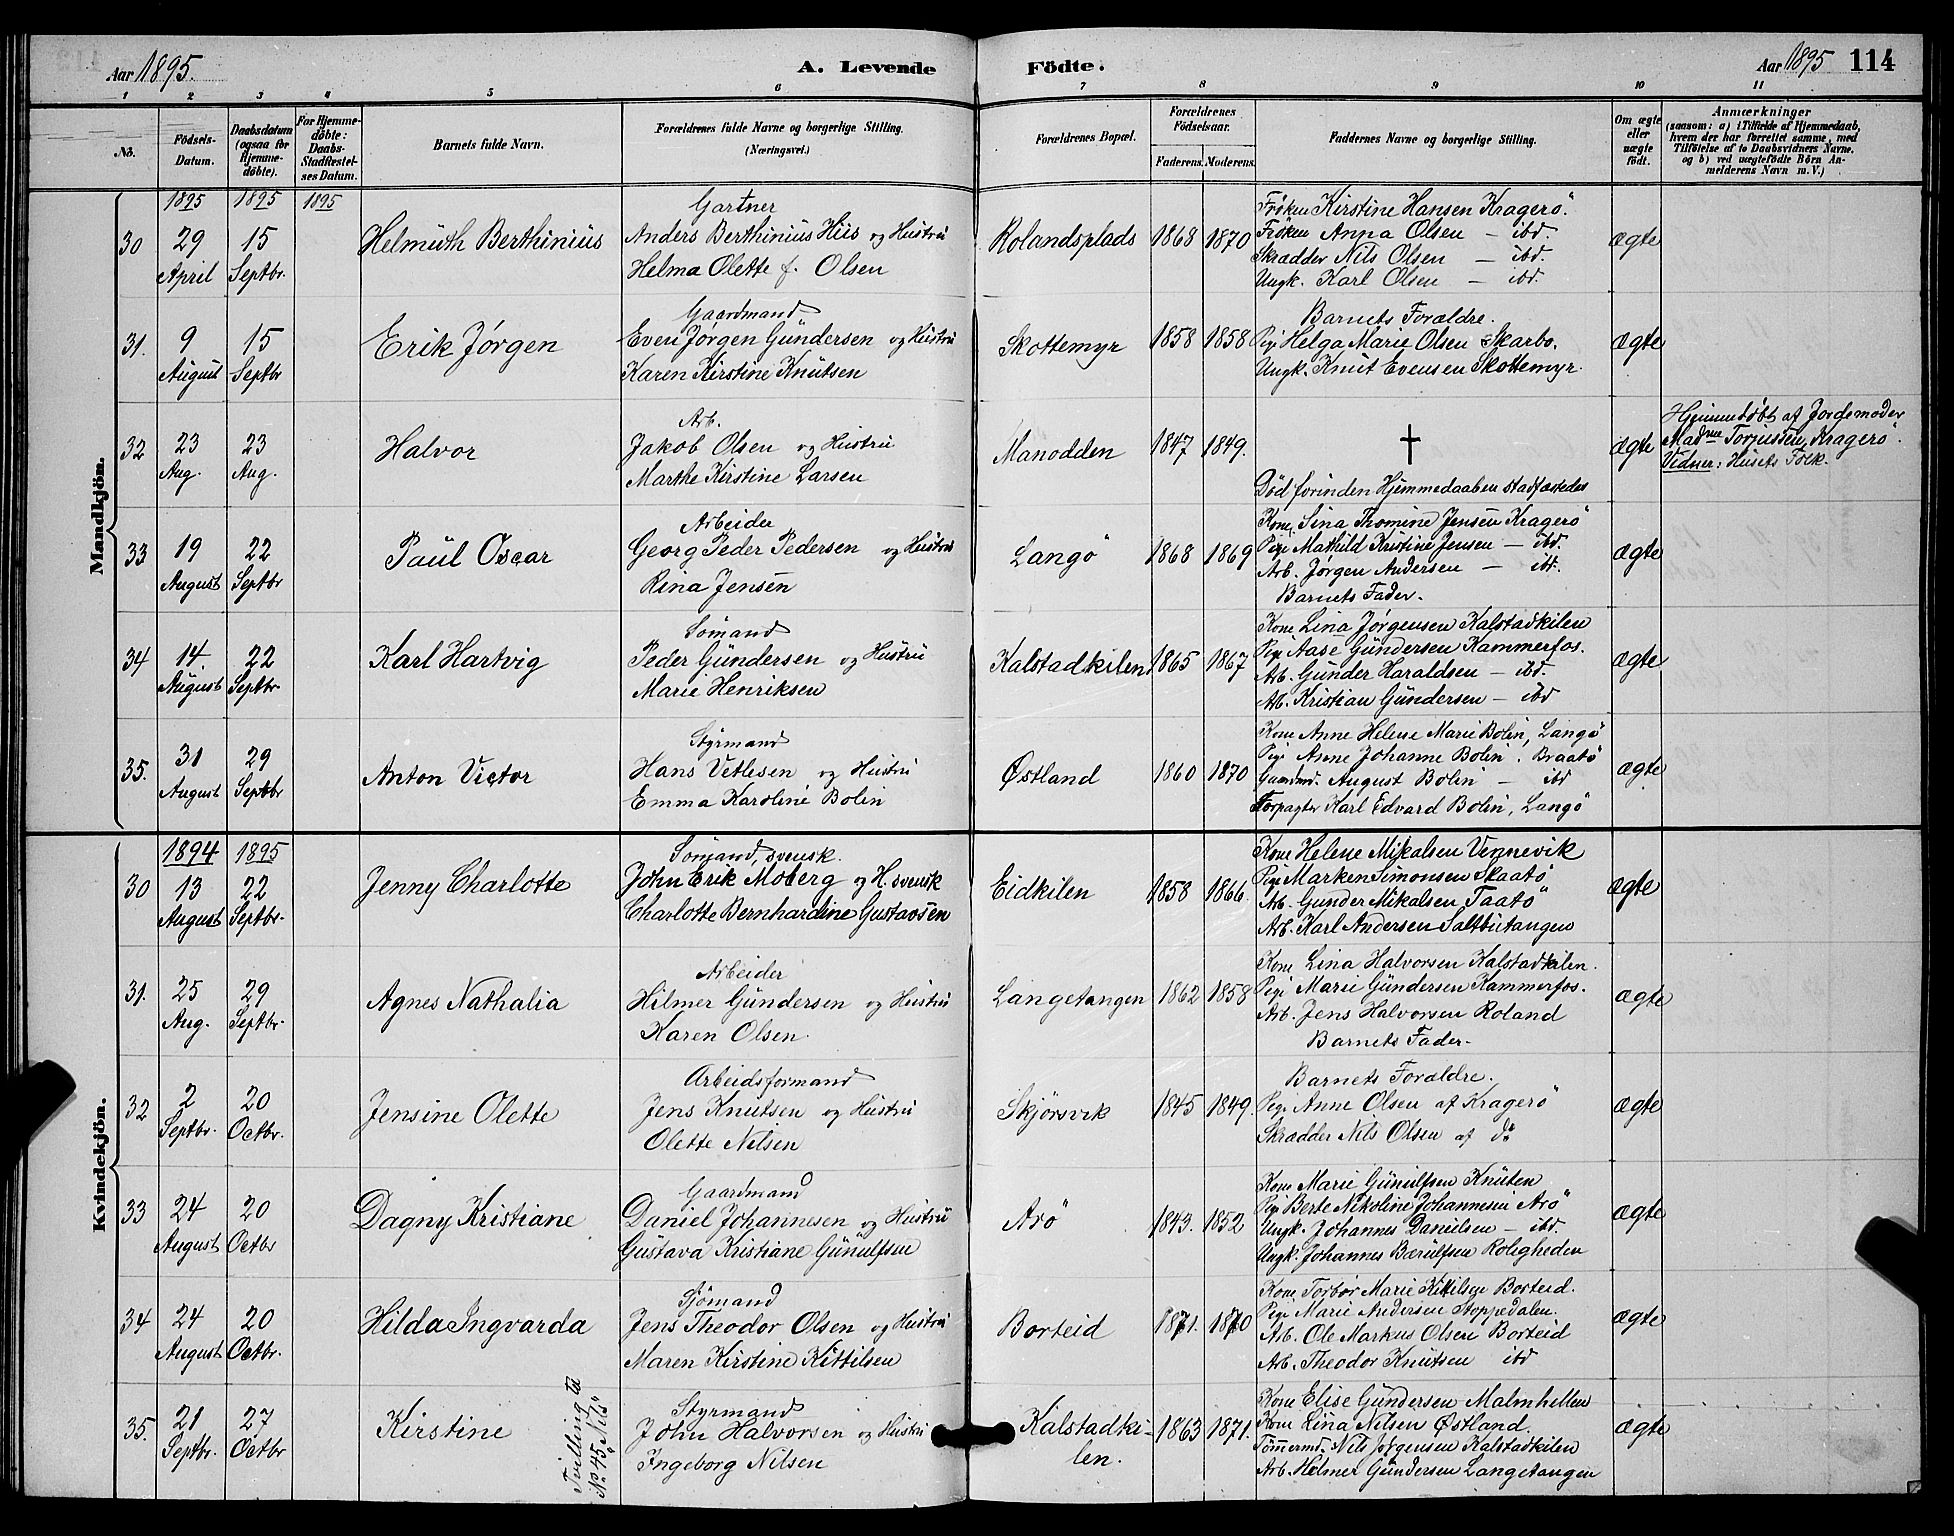 Aar 1895.
A. Levende
Födte.
Aar 1895
114
1 2 3 4 5 6 7 8 9 10 11
No.
Födsels-
Datum.
Daabsdatum
(ogsaa for
Hjemme-
döbte).
For Hjemme-
döbte:
Daabs-
Stadfæstel-
ses Datum.
Barnets fulde Navn.
Forældrenes fulde Navne og borgerlige Stilling.
(Næringsvei.)
Forældrenes Bopæl.
Forældrenes
Födselsaar.
Faderens. Moderens.
Faddernes Navne og borgerlige Stilling.
Om ægte
eller
uægte
födt.
Anmærkninger
(saasom: a) i Tilfælde af Hjemmedaab,
hvem der har forrettet samme, med
Tilföielse af to Daabsvidners Navne,
og b) ved uægtefödte Börn An-
melderens Navn m. V.)
Mandkjön.
1895 1895 1895
30
29
April
15
Septbr.
Helmuth Berthinius
Gartner
Anders Berthinius Hiis og Hustru
Helma Olette f. Olsen
Rolandsplads
1868 1870
Frøken Kirstine Hansen Kragerö.
Frøken Anna Olsen — ibd.
Skrædder Nils Olsen — ibd.
Ungk. Karl Olsen — ibd.
ægte
31.
9
August
15
Septbr
Erik Jørgen
Gaardmand
Even Jørgen Gundersen og Hustru
Karen Kirstine Knutsen
Skottemyr
1858 1858
Barnets Forældre.
Pige Helga Marie Olsen Skarbo.
Ungk. Knut Evensen Skottemyr.
ægte
32
23
Aug.
23
Aug.
Halvor
Arb.
Jakob Olsen og Hustru
Marthe Kirstine Larsen
Manodden
1847 1849.
†
Død forinden Hjemmedaaben stadfæstedes
ægte
Hjemmedøbt af Jordemoder
Madme Torjussen, Kragerö.
Vidner: Husets Folk.
33
19
August
22
Septbr
Paul Oscar
Arbeider
Georg Peder Pedersen og Hustru
Rina Jensen
Langö
1868 1869
Kone Sina Thomine Jensen Kragerö
Pige Mathild Kristine Jensen — ibd.
Arb. Jørgen Andersen — ibd.
Barnets Fader.
ægte
34
14.
August
22
Septbr.
Karl Hartvig
Sømand
Peder Gundersen og Hustru
Marie Henriksen
Kalstadkilen
1865 1867
Kone Lina Jørgensen Kalstadkilen
Pige Aase Gundersen Kammerfos.
Arb. Gunder Haraldsen — ibd.
Arb. Kristian Gundersen — ibd
ægte
35.
31
August
29
Septbr
Anton Victor
Styrmand
Hans Vetlesen og Hustru
Emma Karoline Bolin
Østland
1860 1870
Kone Anne Helene Marie Bolin, Langö
Pige Anne Johanne Bolin. Braatö
Gaardmd. August Bolin — ibd
Forpagter Karl Edvard Bolin, Langö
ægte
Kvindekjön.
1894 1895
30
13
August
22
Septbr.
Jenny Charlotte
Sømand, svensk.
John Erik Moberg og H. svensk
Charlotte Bernhardine Gustavsen
Eidkilen
1858 1866.
Kone Helene Mikalsen Vennevik
Pige Marken Simonsen Skaatö
Arb. Gunder Mikalsen Taatö
Arb. Karl Andersen Saltbutangen
ægte
31.
25
Aug.
29
Septbr.
Agnes Nathalia
Arbeider
Hilmer Gundersen og Hustru
Karen Olsen.
Langetangen
1862 1858
Kone Lina Halvorsen Kalstadkilen.
Pige Marie Gundersen Kammerfos.
Arb. Jens Halvorsen Roland
Barnets Fader.
ægte
32
2
Septbr.
20
Octbr.
Jensine Olette
Arbeidsformand
Jens Knutsen og Hustru
Olette Nilsen
Skjørsvik
1845 1849.
Barnets Forældre.
Pige Anne Olsen af Kragerö
Skrædder Nils Olsen af do
ægte
33
24
August
20
Octbr
Dagny Kristiane
Gaardmand
Daniel Johannesen og Hustru
Gustava Kristiane Gunulfsen
Arö
1843. 1852
Kone Marie Gunulfsen Knuten
Pige Berte Nikoline Johannesen Arö
Ungk. Johannes Danielsen — ibd.
Ungk. Johannes Bærulfsen Roligheden
ægte
34
24
August
20
Octbr.
Hilda Ingvarda
Sjømand
Jens Theodor Olsen og Hustru
Maren Kirstine Kittilsen
Borteid
1871. 1870
Kone Torbor Marie Kittilsen Borteid.
Pige Marie Andersen Stoppedalen.
Arb. Ole Markus Olsen Borteid
Arb. Theodor Knutsen ibd
ægte
35.
21
Septbr.
27
Octbr
Kirstine
Tvilling til
No 45 "Nils"
Styrmand
John Halvorsen og Hustru
Ingeborg Nilsen
Kalstadki-
len.
1863 1871.
Kone Elise Gundersen Malmhellen
Kone Lina Nilsen Østland.
Tømmermd. Nils Jørgensen Kalstadkilen
Arb. Helmer Gundersen Langetangen
ægte